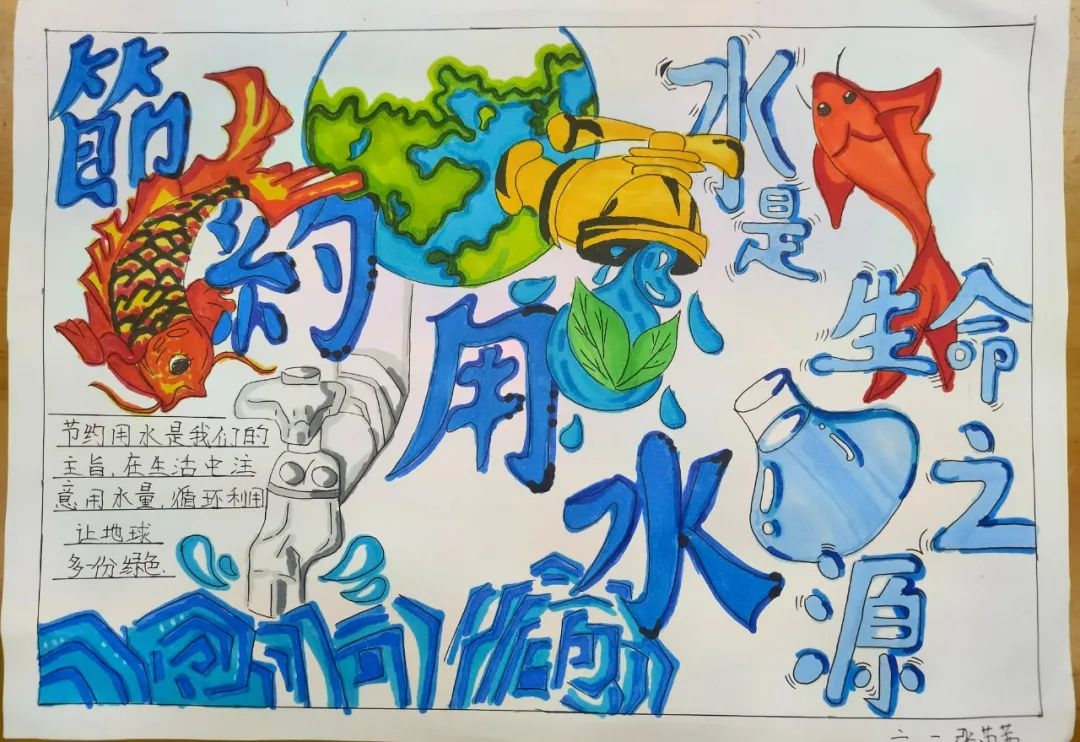 節約用水
水是
生命
之
源
节约用水是我们的
主旨,在生活中注
意用水量,循环利用
让地球
多份绿色.